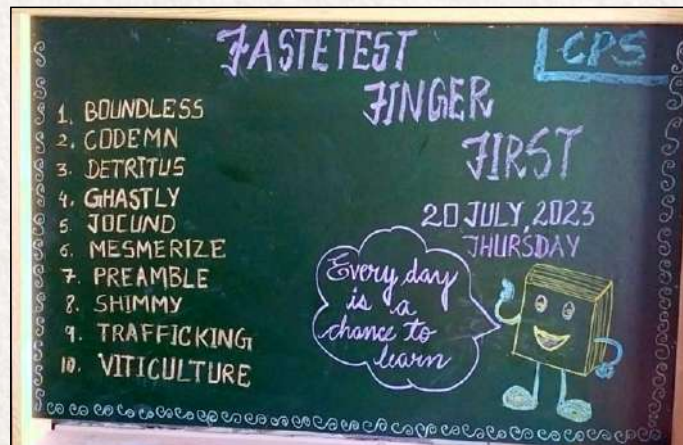 FASTETEST
FINGER
FIRST
CPS
1. BOUNDLESS
2. CODEMN
3. DETRITUS
4. GHASTLY
5. JOCUND
6. MESMERIZE
7. PREAMBLE
8. SHIMMY
9. TRAFFICKING
10. VITICULTURE
20 JULY, 2023
THURSDAY
Every day
is a
chance to
learn